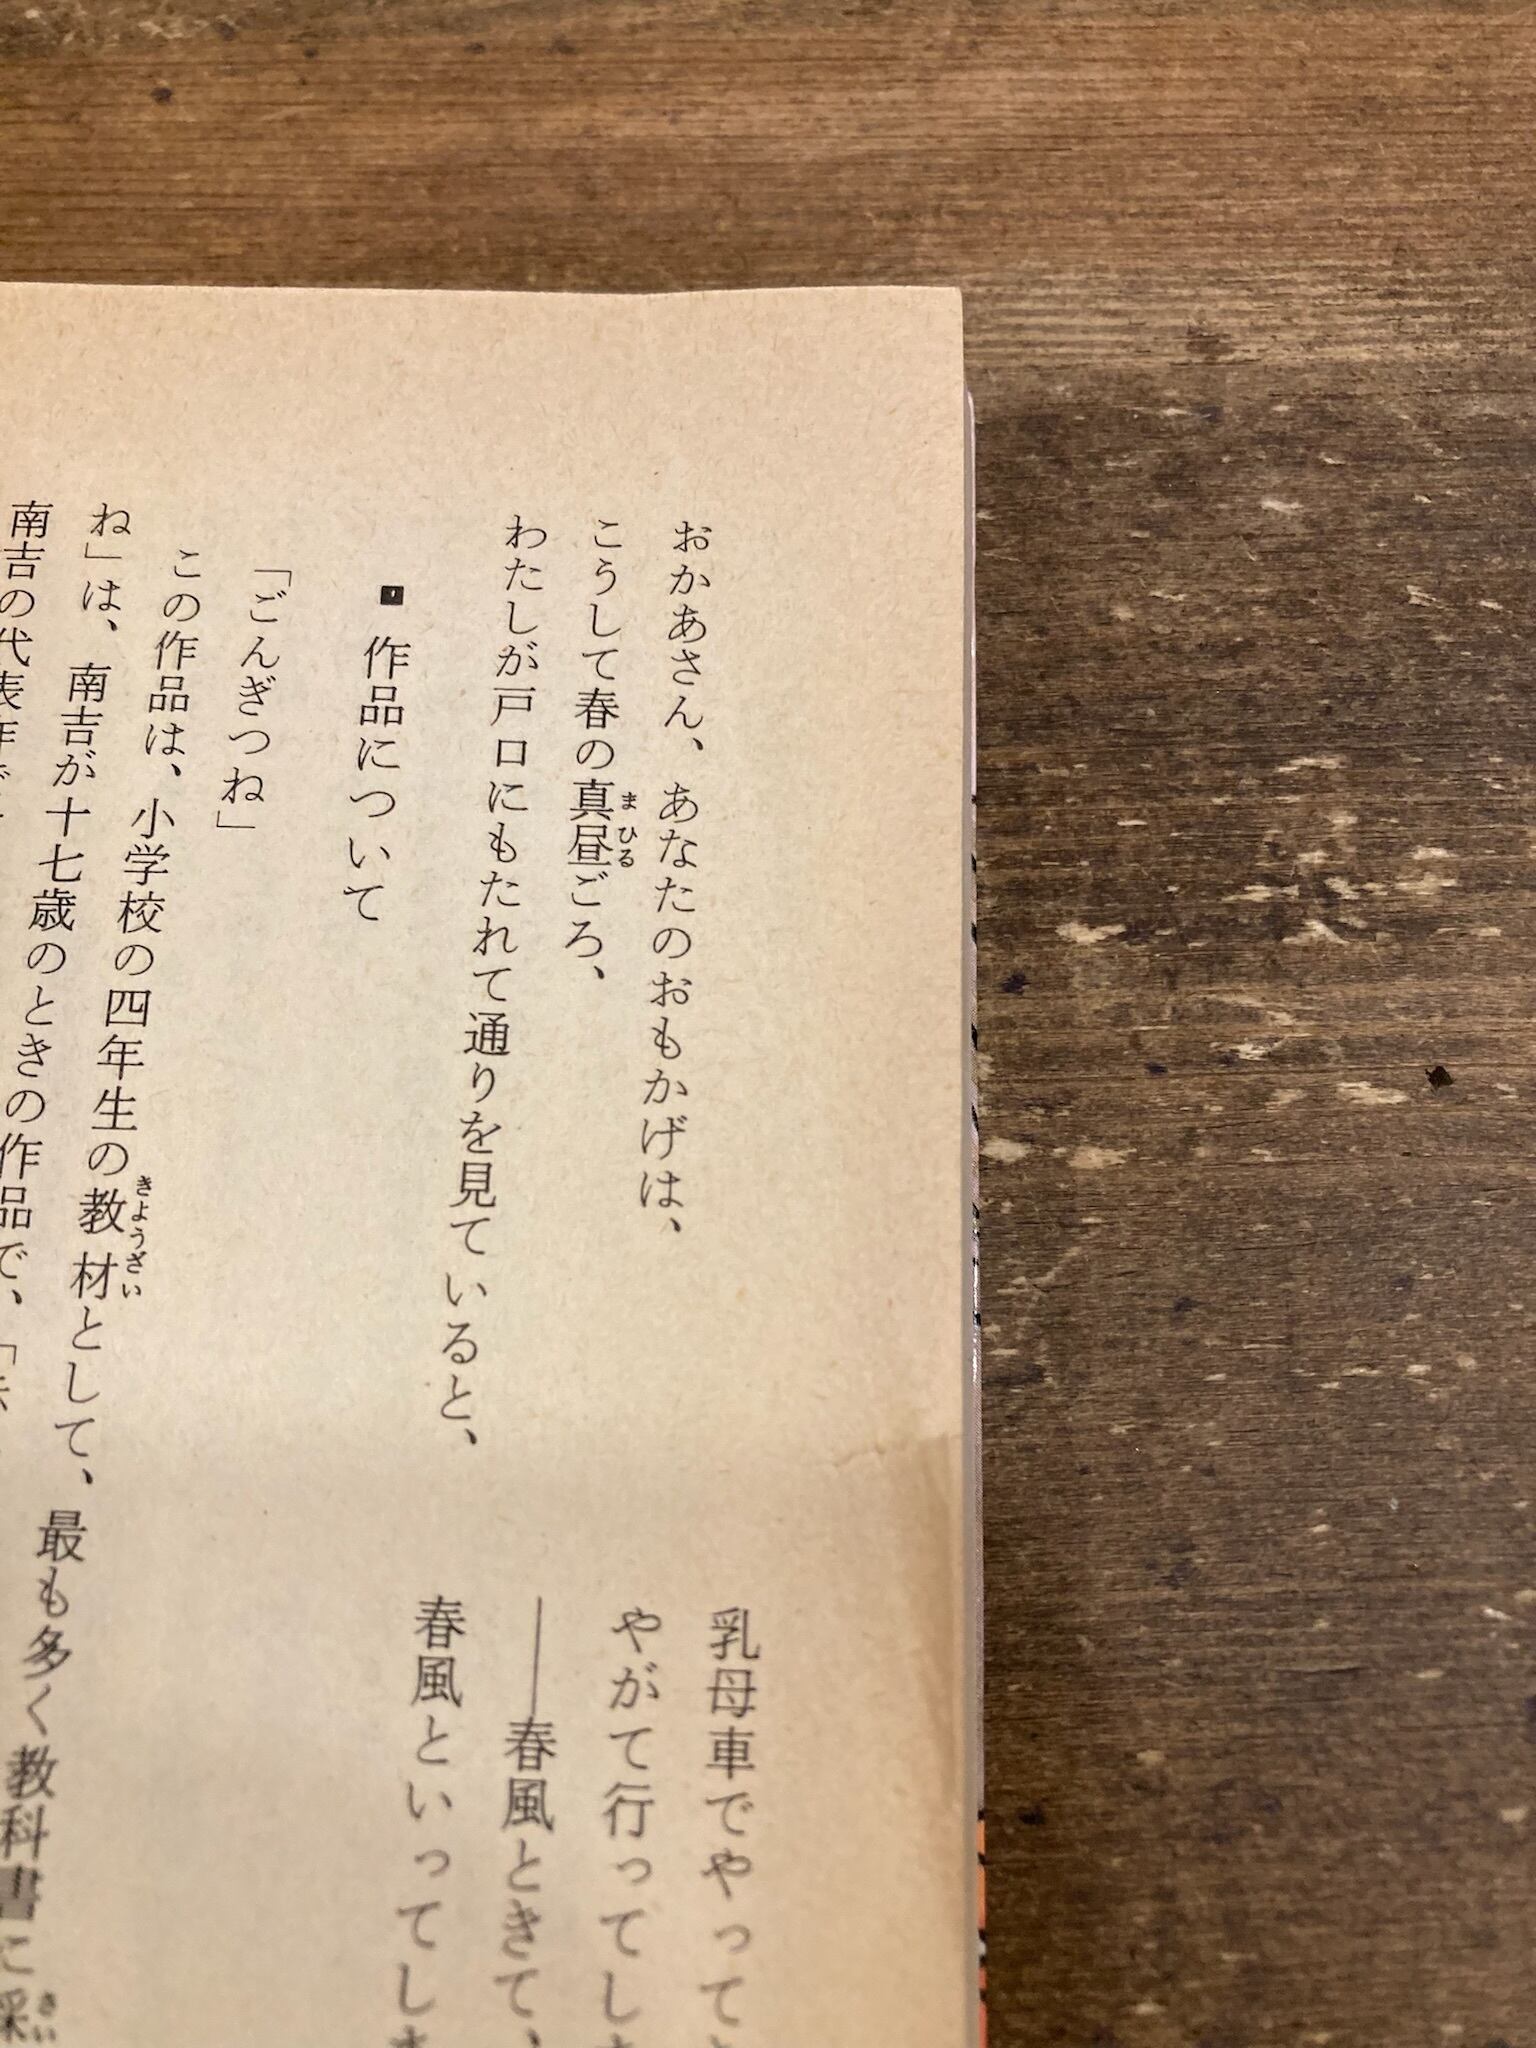 おかあさん、あなたのおもかげは、
こうして春の真昼ごろ、
わたしが戸口にもたれて通りを見ていると、
乳母車でやって
やがて行ってし
――春風ときて、
春風といってしま
▪ 作品について
「ごんぎつね」
この作品は、小学校の四年生の教材として、最も多く教科書に採
ね」は、南吉が十七歳のときの作品で、「
南吉の代表作
まひる
きようざい
さい